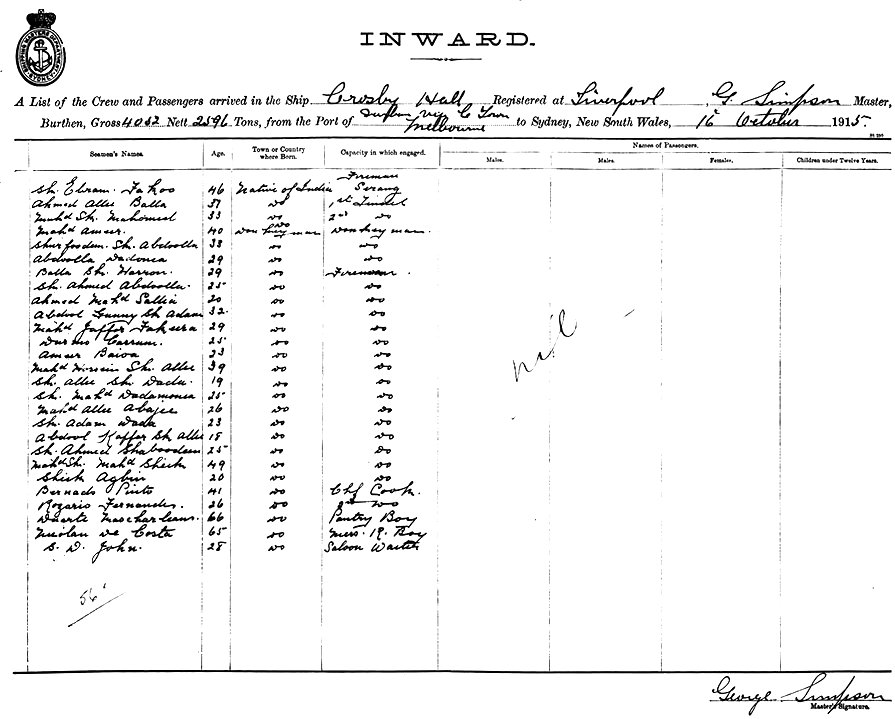 SHIPPING MASTERS DEPARTMENT SYDNEY
INWARD.
A List of the Crew and Passengers arrived in the Ship Crosby Hall Registered at Liverpool, G. Simpson Master,
Burthen, Gross 4052 Nett 2596 Tons, from the Port of via C Town Melbourne to Sydney, New South Wales, 16 October 1915.
Names of Passengers.
Seamen's Names. Age. Town or Country where Born. Capacity in which engaged. Males. Males. Females. Children under Twelve Years.
Fireman
Sh. Ebram Fakoo 46 Native of India Serang
Ahmed Allee Balla 37 do 1st Tindel
Mahd Sh. Mahomed 33 do 2nd do
do
Mahd Ameer. 40 Donkeyman Donkeyman.
Shurfoodeen Sh. Abdoolla 38 do do
Abdoolla Dadamea 29 do do
Balla Sh. Harron. 29 do Fireman.
Sh. Ahmed Abdoolla. 25 do do
Ahmed Mahd Sallia 20 do do
Abdool Gunny Sh Adam 32. do do
Mahd Jaffer Fakeera 29 do do
Carrum. 25 do do
Ameer Bawa 23 do do
Mahd Sh. Allee 39 do do
Sh. Allee Sh. Dada. 19 do do
Sh. Mahd Dadamea 25 do do
Mahd Allee Abajee 26 do do
Sh. Adam Dada 23 do do
Abdool Kaffer Sh Allee 18 do do
Sh. Ahmed Shaboodeen 25 do do
Mahd Sh. Mahd Sheik 49 do do
Sheik 20 do do
Bernado Pinto 41 do Chf Cook.
Rozario Fernandes. 26 do 2nd do
Duarte 66 do Pantry Boy
Nicolau de Costa 65 do Mess R. Boy
S. D. John. 28 do Saloon Waiter
nil
56
George Simpson
Master's Signature.